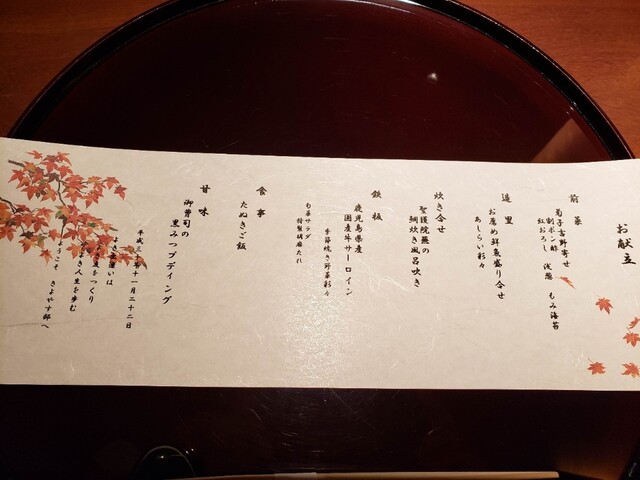 お献立
前菜
菊子吉野寄せ
割ポン酢
紅おろし 浅葱 もみ海苔
造里
お薦め鮮魚盛り合せ
あしらい彩々
炊き合せ
聖護院蕪の
鯛炊き風呂吹き
鉄板
鹿児島県産
国産牛サーロイン
季節焼き野菜彩々
旬菜サラダ
特製胡麻だれ
食事
たぬきご飯
甘味
御曹司の
黒みつプディング
平成三十年十一月二十二日
よき出逢いは
をつくり
よき人生を歩む
ようこそ きよやす邸へ